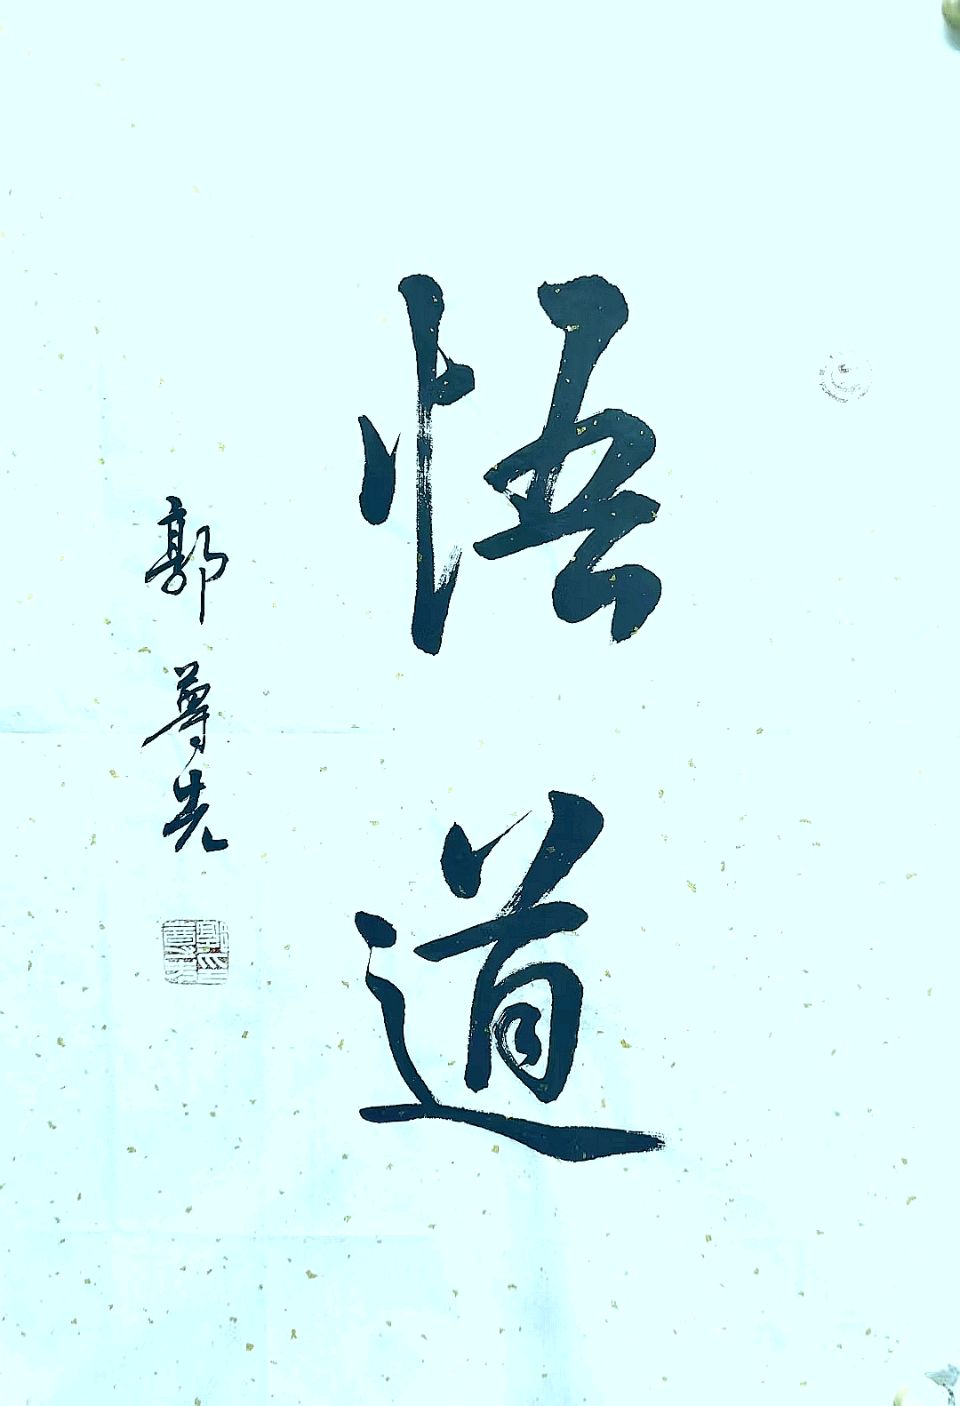 悟道
郭尊先